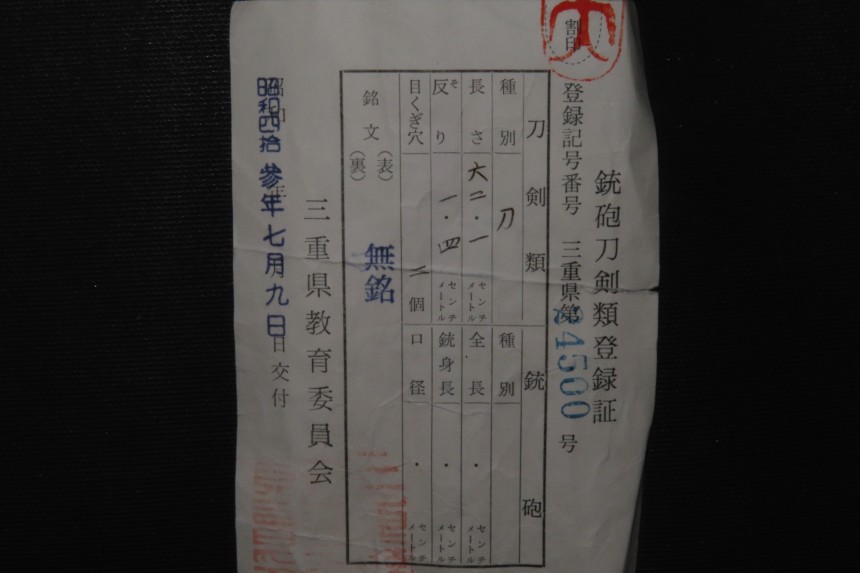 銃砲刀剣類登録証
割印
登録記号番号 三重県第24500号
刀剣類 銃砲
種別 刀 種別
長さ 六二・一 センチメートル 全長 ・ センチメートル
反り そ 一・四 センチメートル 銃身長 ・ センチメートル
目くぎ穴 二 個 口径 ・ センチメートル
銘文 (表) 無銘
(裏)
三重県教育委員会
昭和四拾参年七月九日交付